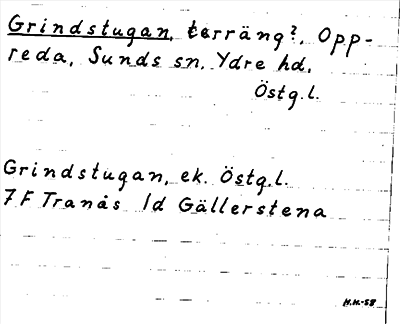 Grindstugan, terräng?, Opp-
reda, Sunds sn. Ydre hd.
Östg.l.
Grindstugan, ek. Östg.l.
7F Tranås 1d Gällerstena
H.H.-58